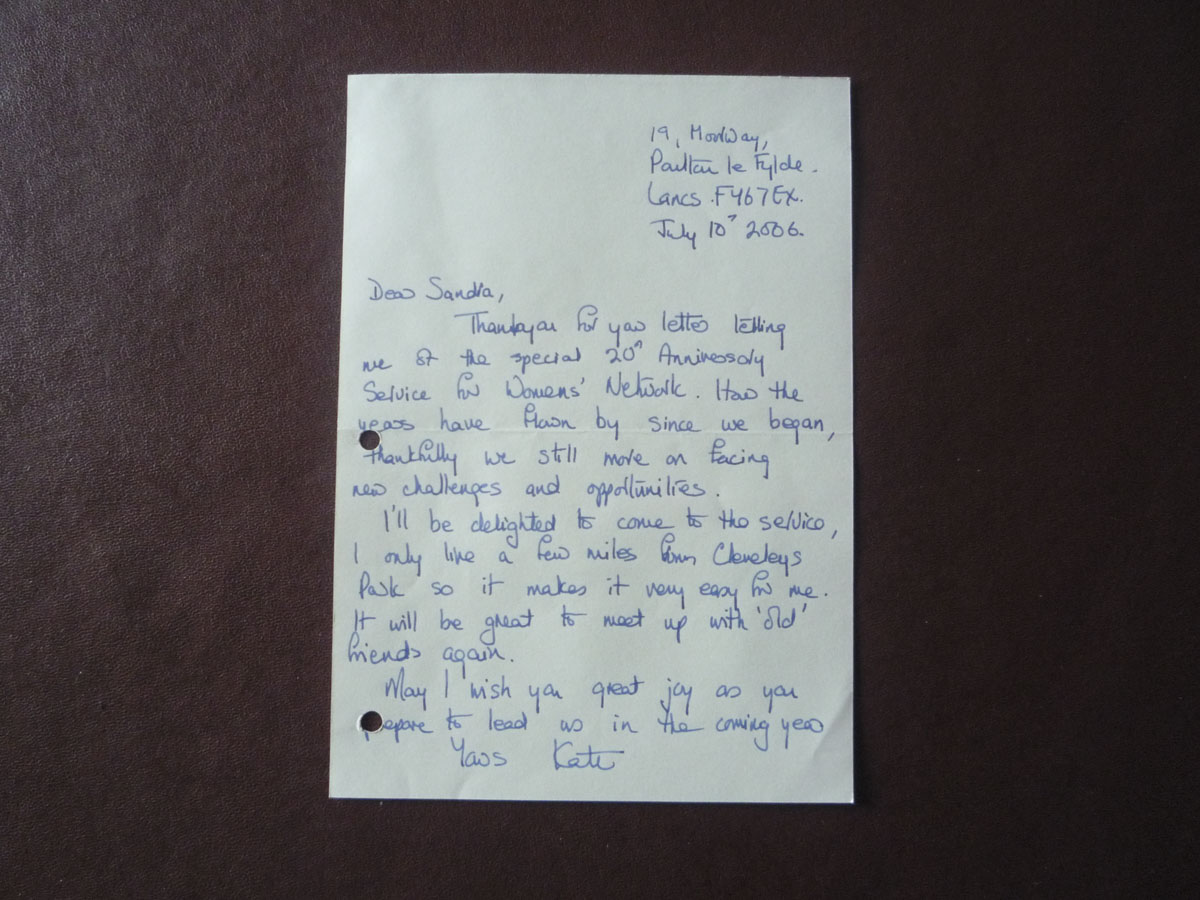 19, Moorway,
Poulton le Fylde.
Lancs. FY67EX.
July 10th 2006.
Dear Sandra,
Thankyou for your letter telling
me of the special 20th Anniversary
Service for Womens' Network. How the
years have flown by since we began,
thankfully we still move on facing
new challenges and opportunities.
I'll be delighted to come to the service,
I only live a few miles from Cleveleys
Park so it makes it very easy for me.
It will be great to meet up with 'old'
friends again.
May I wish you great joy as you
prepare to lead us in the coming year
Yours Kate